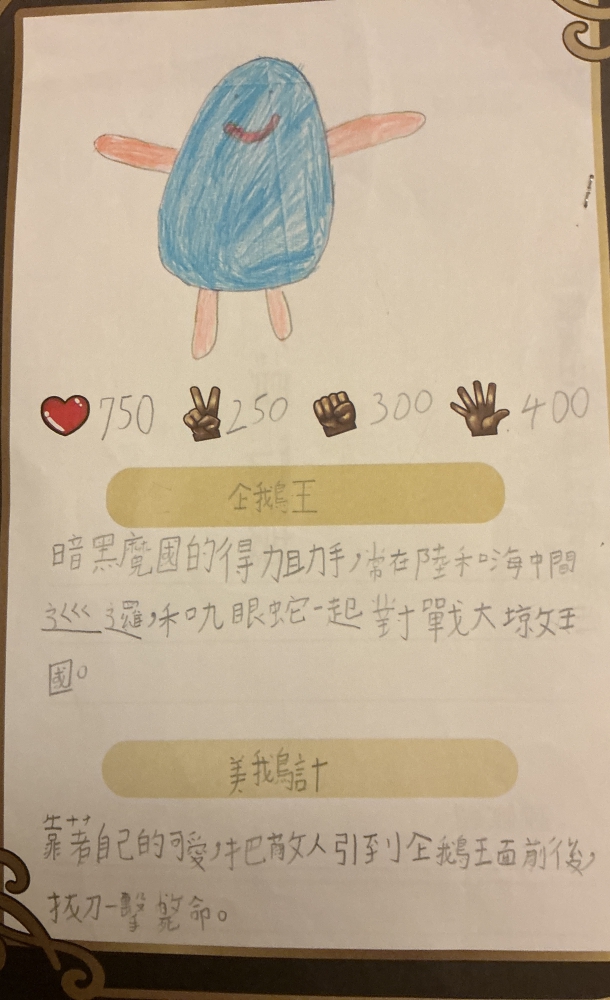 750 250 300 400
企鵝王
暗黑魔國的得力助手,常在陸和海中間
巡邏,和 眼蛇一起對戰大 王
國。
美鵝計
靠著自己的可愛,把敵人引到小企鵝王面前後,
拔刀一擊斃命。